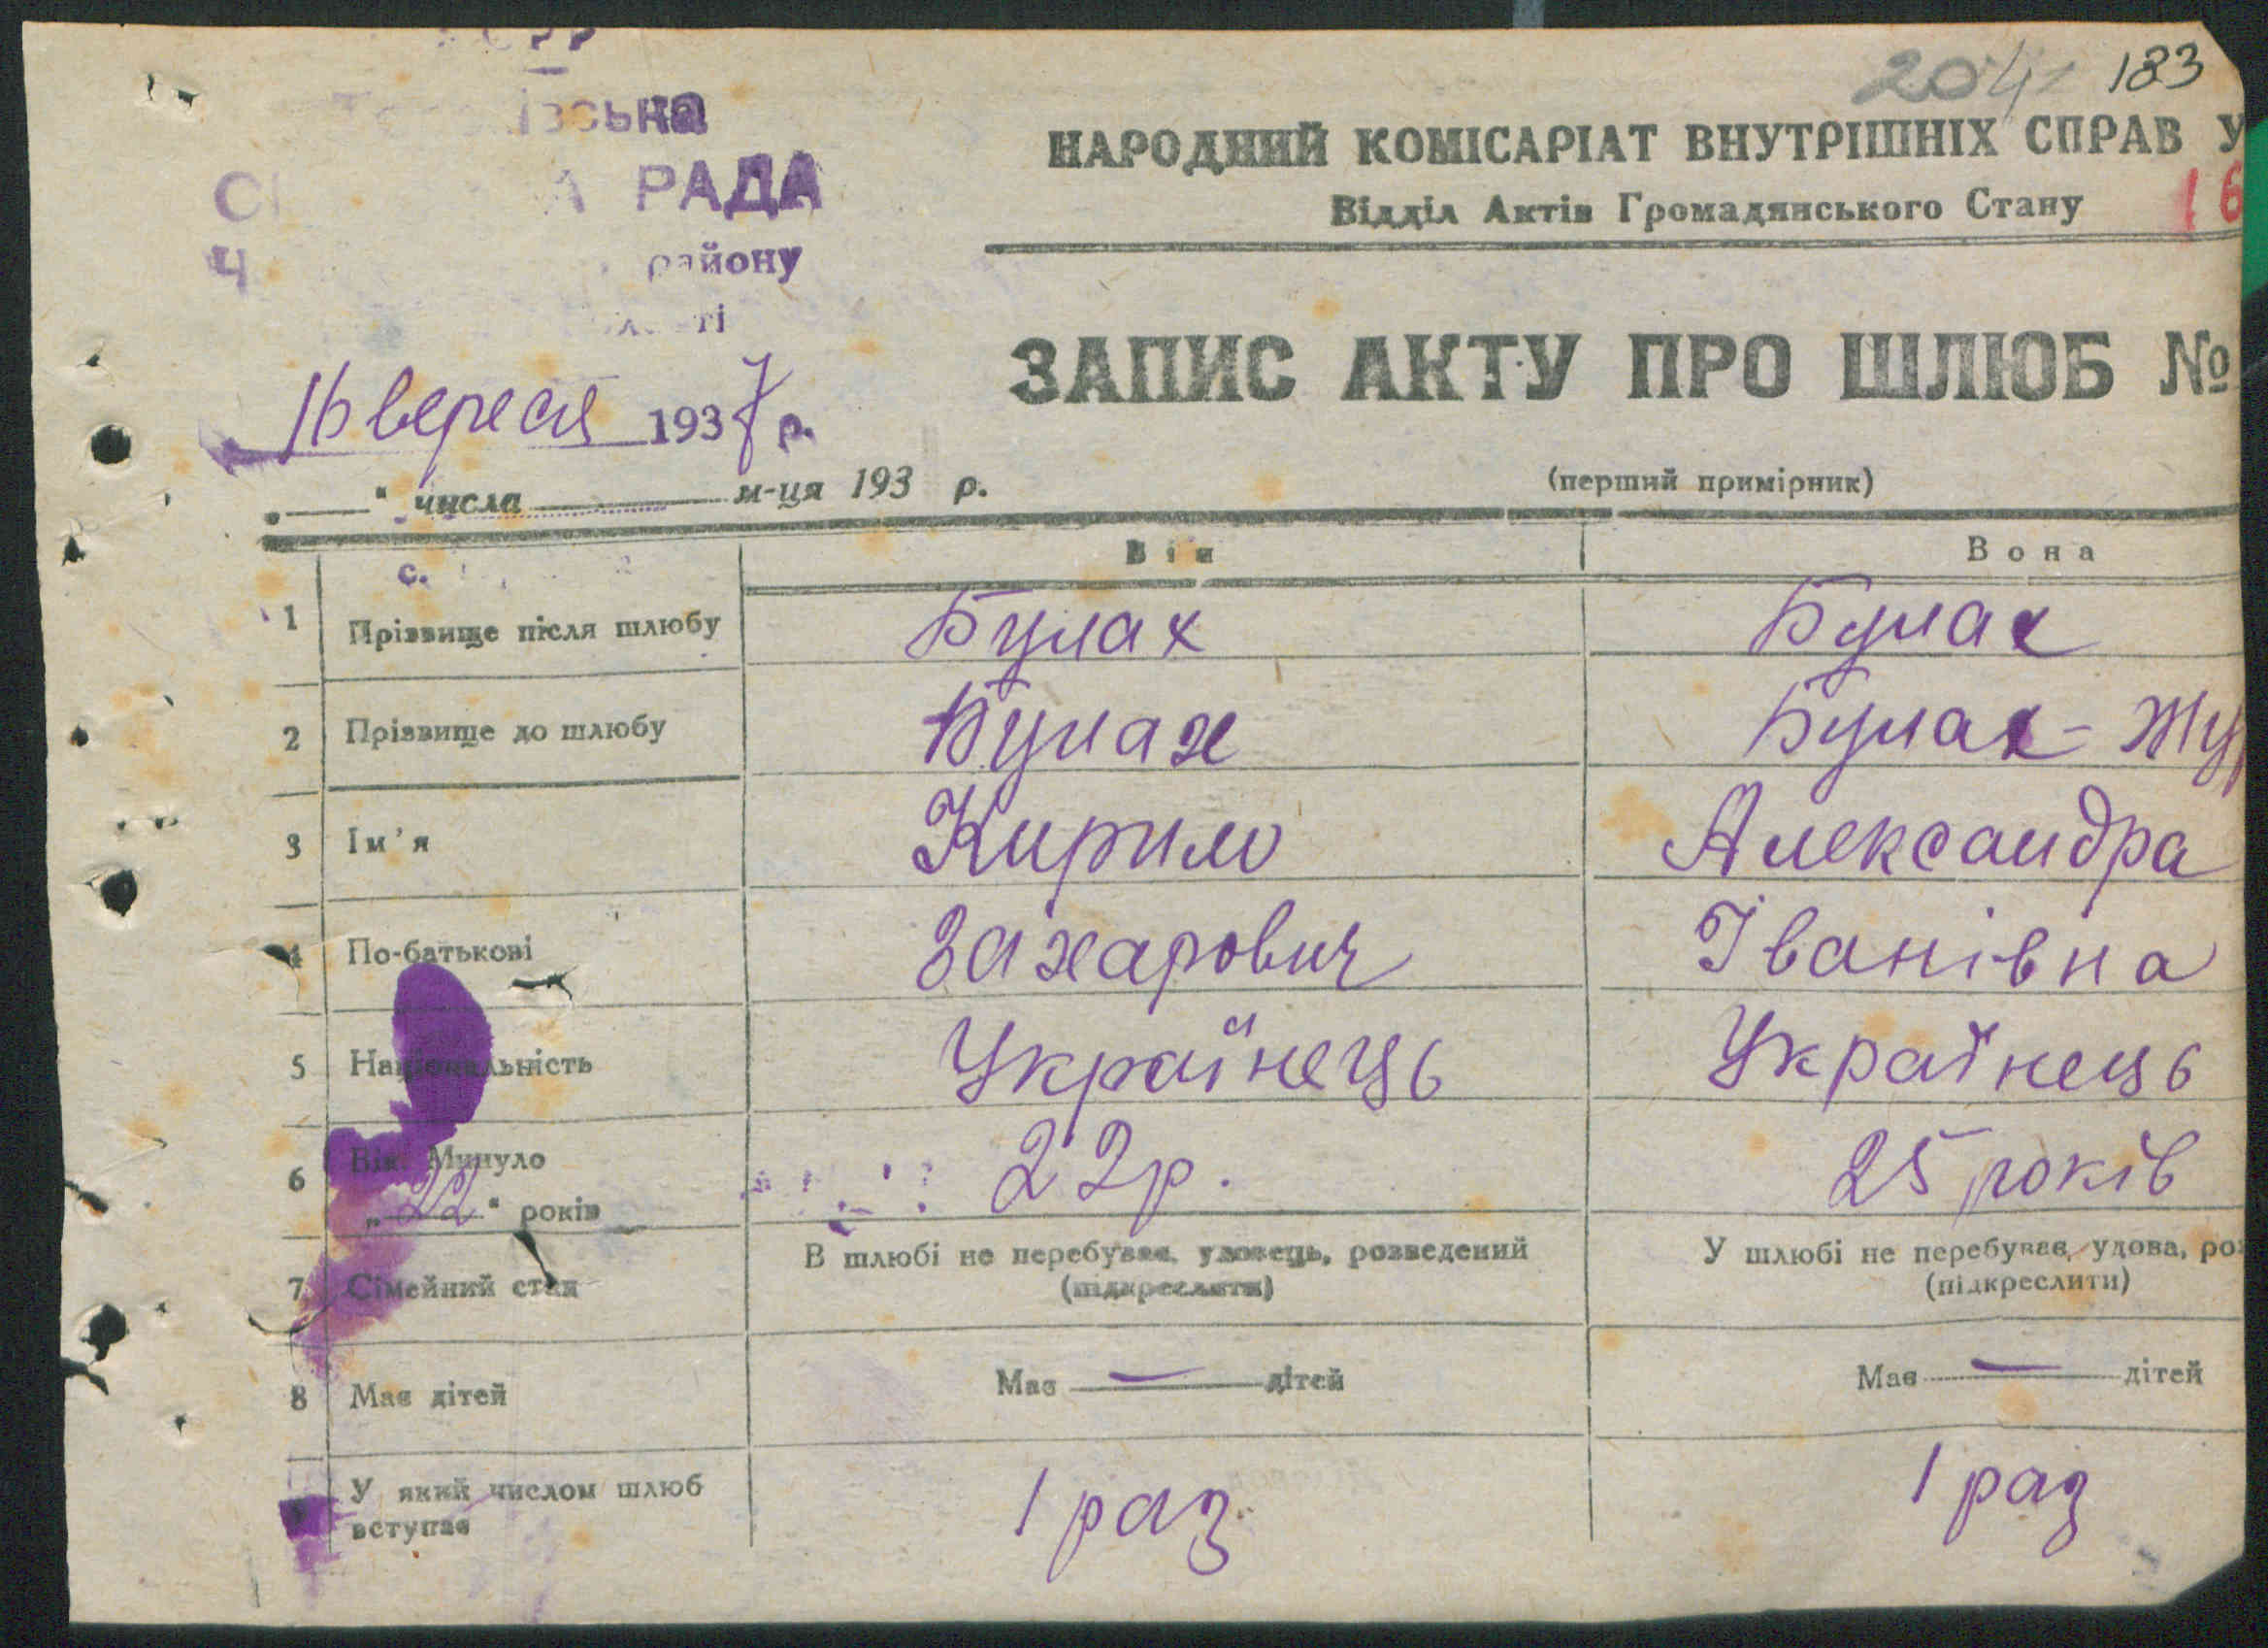 204 183
РАДА
району
НАРОДНИЙ КОМІСАРІАТ ВНУТРІШНІХ СПРАВ У
Відділ Актів Громадянського Стану
16
ЗАПИС АКТУ ПРО ШЛЮБ №
16 вересня 1937 р.
„ “ числа м-ця 193 р.
(перший примірник)
Він Вона
1 Прізвище після шлюбу Булах Булах
2 Прізвище до шлюбу Булах Булах - Жу
3 Ім'я Кирило Александра
4 По-батькові Захарович Іванівна
5 Національність Українець Українець
6 Вік. Минуло
„22“ років 22р. 25 років
7 Сімейний стан В шлюбі не перебував, удовець, розведений У шлюбі не перебував, удова, роз
(підкреслити) (підкреслити)
8 Має дітей Має — дітей Має — дітей
У який числом шлюб
вступає 1 раз 1 раз